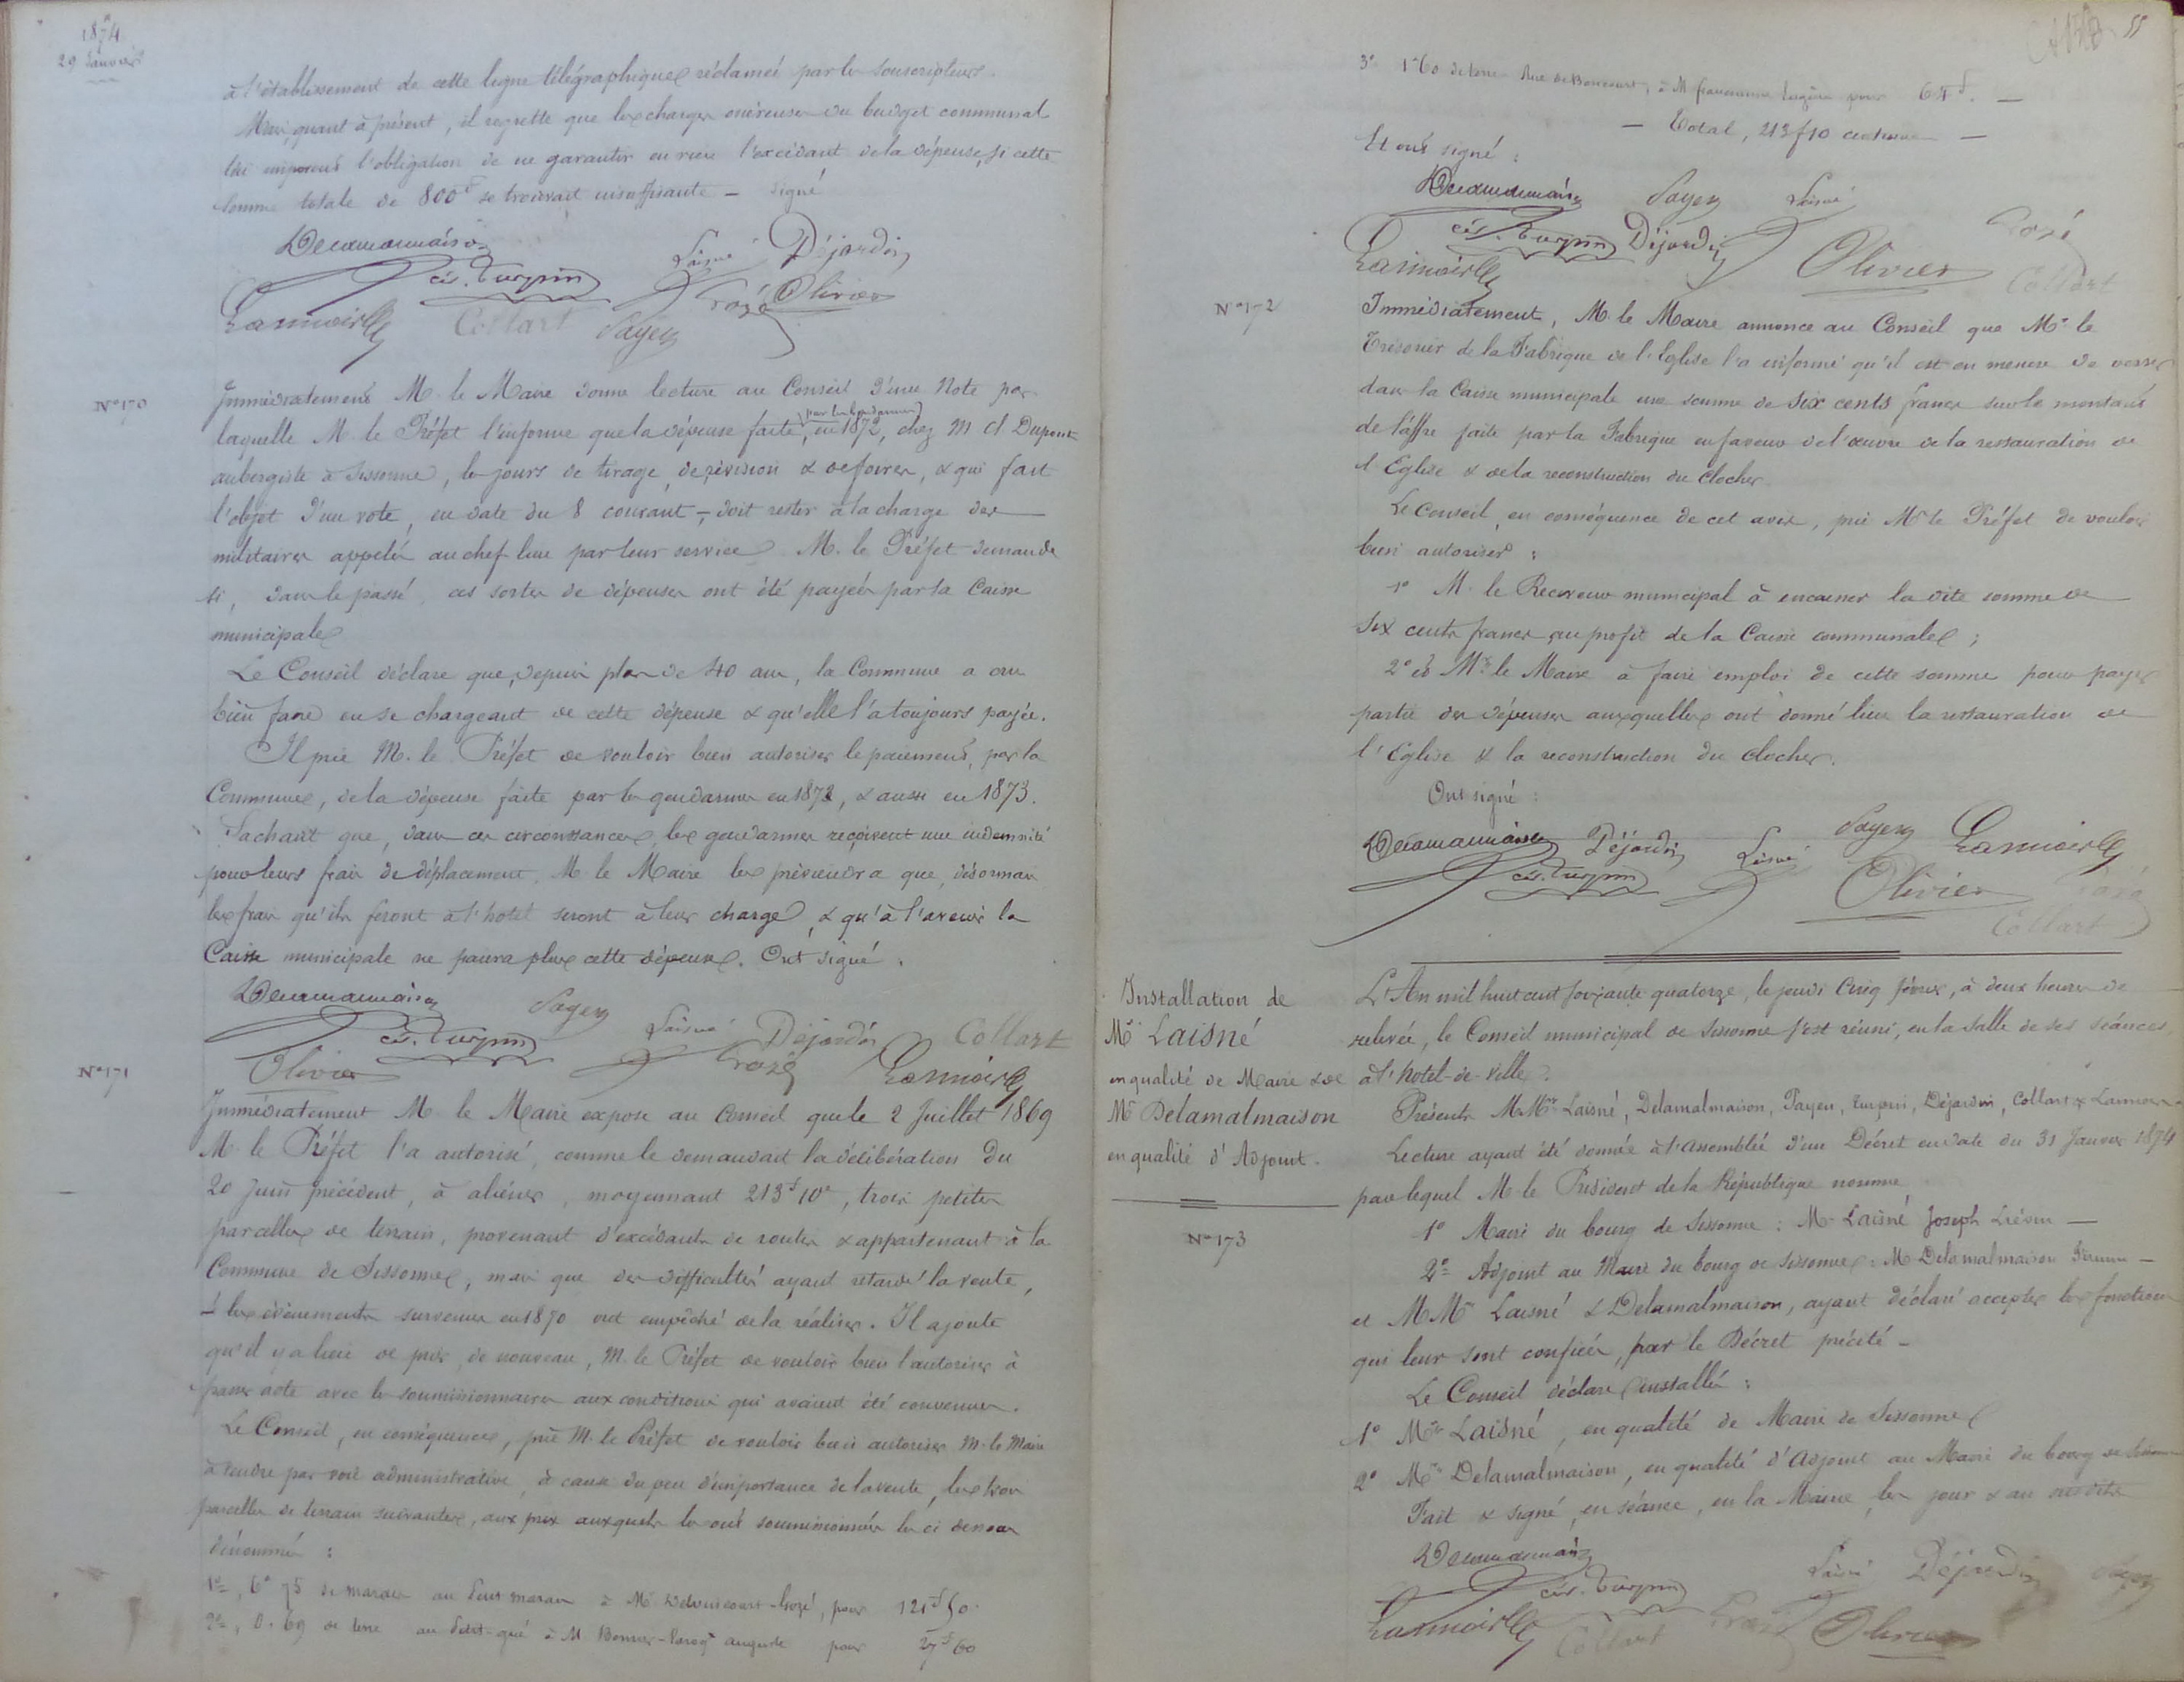 1874
29 Janvier
à l'établissement de cette ligne télégraphique réclamée par les souscripteurs.
Mais, quant à présent, il regrette que les charges onéreuses du budget communal
lui imposent l'obligation de ne garantir en rien l'excédant de la dépense, si cette
somme totale de 800f se trouvait insuffisante — signé
Delamalmaison
Laisné Déjardin
cés. Turpin
Lannois Collart Payen Crozé Olivier
N° 170
Immédiatement M. le Maire donne lecture au Conseil d'une Note par
laquelle M. le Préfet l'informe que la dépense faite, (par les gendarmes) en 1872, chez M Dupont
aubergiste à Sissonne, les jours de tirage, de révision & de foires, & qui fait
l'objet d'un vote, en date du 8 courant, — doit rester à la charge des
militaires appelés au chef lieu par leur service. M. le Préfet demande
si, dans le passé, ces sortes de dépenses ont été payées par la Caisse
municipale
Le Conseil déclare que, depuis plus de 40 ans, la Commune a cru
bien faire en se chargeant de cette dépense & qu'elle l'a toujours payée.
Il prie M. le Préfet de vouloir bien autoriser le paiement, par la
Commune, de la dépense faite par les gendarmes en 1872, & aussi en 1873.
Sachant que, dans ces circonstances, les gendarmes reçoivent une indemnité
pour leurs frais de déplacement, M. le Maire les préviendra que, désormais
les frais qu'ils feront à l'hotel seront à leur charge, & qu'à l'avenir la
Caisse municipale ne paiera plus cette dépense. Ont signé :
Delamalmaison Payen
cés. Turpin Laisné Déjardin Collart
Olivier Crozé Lannois
N° 171
Immédiatement M. le Maire expose au Conseil que le 2 Juillet 1869
M. le Préfet l'a autorisé, comme le demandait la délibération du
20 Juin précédent, à aliéner, moyennant 213f 10c, trois petites
parcelles de terrain, provenant d'excédants de routes & appartenant à la
Commune de Sissonne, mais que des difficultés ayant retardé la vente,
& les évènements survenus en 1870 ont empêché de la réaliser. Il ajoute
qu'il y a lieu de prier, de nouveau, M. le Préfet de vouloir bien l'autoriser à
passer acte avec les soumissionnaires aux conditions qui avaient été convenues.
Le Conseil, en conséquence, prie M. le Préfet de vouloir bien autoriser M. le Maire
à vendre par voie administrative, à cause du peu d'importance de la vente, les trois
parcelles de terrain suivantes, aux prix auxquels les ont soumissionnées les ci dessous
dénommés :
1°, 6a 75 de marais au marais à Mr , pour 121f 50
2°, 0. 69 de terre au à M. Auguste pour 27f 60
55
3° 1a 60 de terre Rue de Boncourt, à M pour 64f. —
— Total, 213f10 centimes —
Et ont signé :
Delamalmaison Payen Laisné
cés. Turpin Déjardin Crozé
Lannois Olivier Collart
N° 172
Immédiatement, M. le Maire annonce au Conseil que Mr. le
Trésorier de la Fabrique de l'Eglise l'a informé qu'il est en mesure de verser
dans la Caisse municipale une somme de six cents francs sur le montant
de l'offre faite par la Fabrique en faveur de l'œuvre de la restauration de
l'Eglise & de la reconstruction du clocher.
Le Conseil, en conséquence de cet avis, prie Mr le Préfet de vouloir
bien autoriser :
1° M. le Receveur municipal à encaisser la dite somme de
six cents francs au profit de la Caisse communale ;
2° et Mr. le Maire à faire emploi de cette somme pour payer
partie des dépenses auxquelles ont donné lieu la restauration de
l'Eglise & la reconstruction du clocher.
Ont signé :
Delamalmaison Déjardin Laisné Payen Lannois
cés. Turpin Olivier Crozé
Collart
Installation de
Mr Laisné
en qualité de Maire & de
Mr Delamalmaison
en qualité d'Adjoint.
N° 173
L'An mil huit cent soixante quatorze, le jeudi cinq février, à deux heures de
relevée, le Conseil municipal de Sissonne s'est réuni, en la salle de ses séances
à l'hotel-de-ville.
Présents M.Mrs Laisné, Delamalmaison, Payen, Turpin, Déjardin, Collart & Lannois
Lecture ayant été donnée à l'assemblée d'un Décret en date du 31 Janvier 1874
par lequel M. le Président de la République nomme
1° Maire du bourg de Sissonne : Mr Laisné Joseph Liévin —
2° Adjoint au Maire du bourg de Sissonne : M. Delamalmaison —
et MMrs Laisné & Delamalmaison, ayant déclaré accepter les fonctions
qui leur sont confiées, par le Décret précité —
Le Conseil déclare installés :
1° Mr Laisné, en qualité de Maire de Sissonne
2° Mr Delamalmaison, en qualité d'Adjoint au Maire du bourg de Sissonne
Fait & signé, en séance, en la Mairie, les jour & an susdits
Delamalmaison Laisné Déjardin Payen
cés. Turpin
Lannois Collart Crozé Olivier